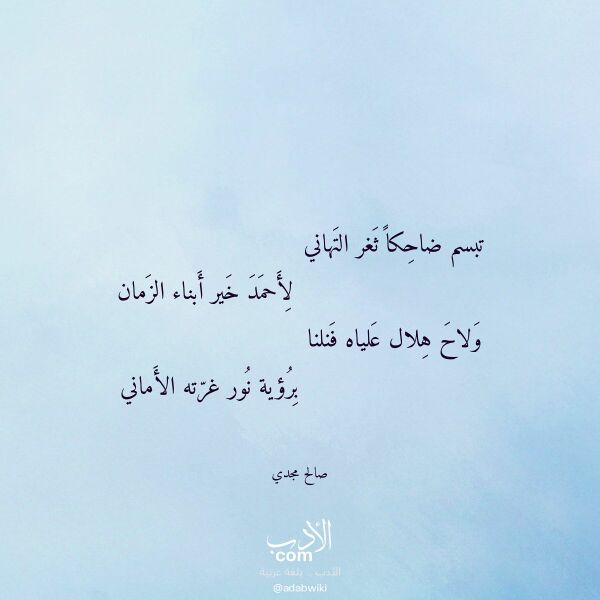 تبسم ضاحِكاً ثَغر التَهاني
لِأَحمَدَ خَير أَبناء الزَمان
وَلاحَ هِلال عَلياه فَنلنا
بِرُؤية نُور غرّته الأَماني
صالح مجدي
الأدب
com
الأدب .. بلغة عربية
@adabwiki